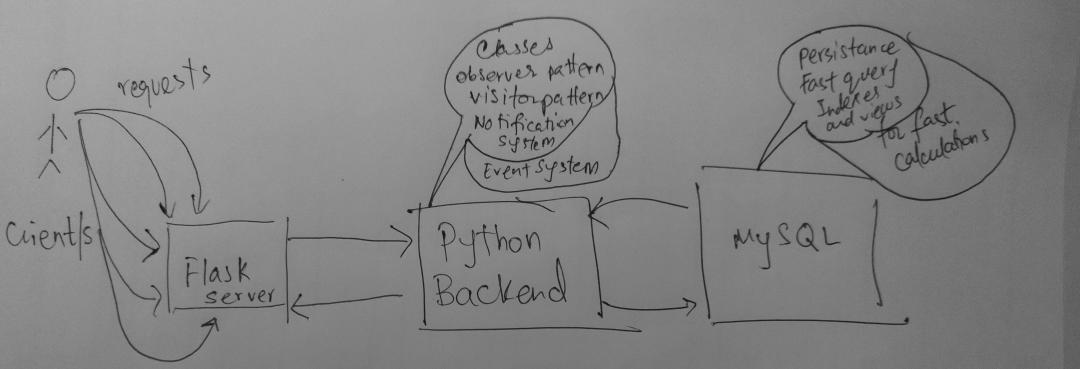 requests
Client/s
Flask
server
Classes
observer pattern
visitor pattern
Notification
system
Event System
Python
Backend
persistance
Fast query
Indexes
and views
for fast.
calculations
MySQL